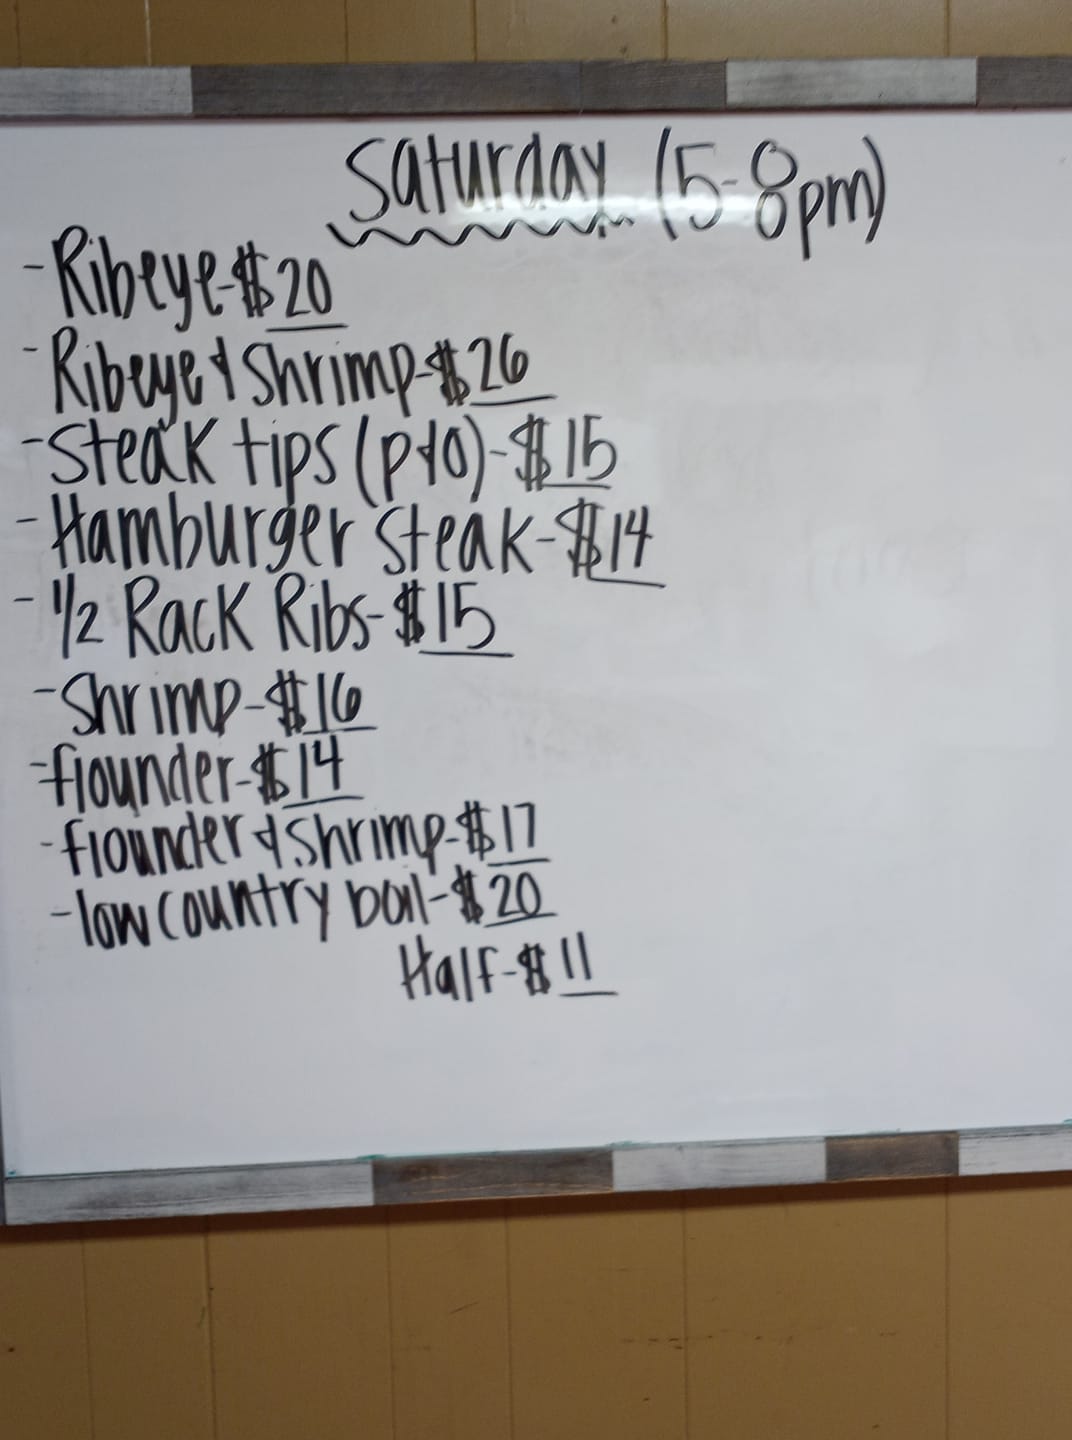 Saturday (5-8pm)
- Ribeye-$20
- Ribeye & Shrimp-$26
- Steak tips (p&o)-$15
- Hamburger Steak-$14
- 1/2 Rack Ribs-$15
- Shrimp-$16
- flounder-$14
- flounder & Shrimp-$17
- low country boil-$20
Half-$11